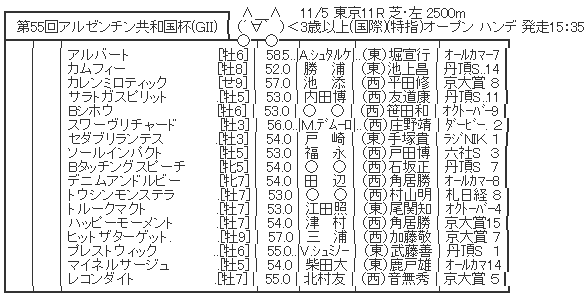 第55回アルゼンチン共和国杯(GII)
11/5 東京11R 芝・左 2500m
<3歳以上(国際)(特指)オープン ハンデ 発走15:35
アルバート [牡6] 58.5.. A.シュタルケ (東)堀宣行 オールカマー7
カムフィー [牡8] 52.0 勝浦 (東)池上昌 丹頂S.14
カレンミロティック [せ9] 57.0 池添 (西)平田修 京大賞 8
サラトガスピリット. [牡5] 53.0 内田博 (西)友道康 丹頂S.11
Bシホウ [牡6] 53.0 ○ ○ (西)笹田和 オクトーバー9
スワーヴリチャード [牡3] 56.0.. M.デムーロ (西)庄野靖 ダービー. 2
セダブリランテス [牡3] 54.0 戸崎 (東)手塚貴 ラジNIK 1
ソールインパクト [牡5] 53.0 福永 (西)戸田博 六社S 3
Bタッチングスピーチ [牝5] 54.0 ○ ○ (西)石坂正 丹頂S 7
デニムアンドルビー [牝7] 54.0 田辺 (西)角居勝 オールカマー8
トウシンモンステラ [牡7] 53.0 ○ ○ (西)村山明 札日経 8
トルークマクト [牡7] 53.0 江田照 (東)尾関知 オクトーバー4
ハッピーモーメント [牡7] 54.0 津村 (西)角居勝 京大賞15
ヒットザターゲット. [牡9] 57.0 三浦 (西)加藤敬 京大賞 7
プレストウィック [牡6] 55.0.. V.シュミノー (東)武藤善 丹頂S 1
マイネルサージュ [牡5] 54.0 柴田大 (東)鹿戸雄 オールカマ14
レコンダイト [牡7] 55.0 北村友 (西)音無秀 京大賞 5